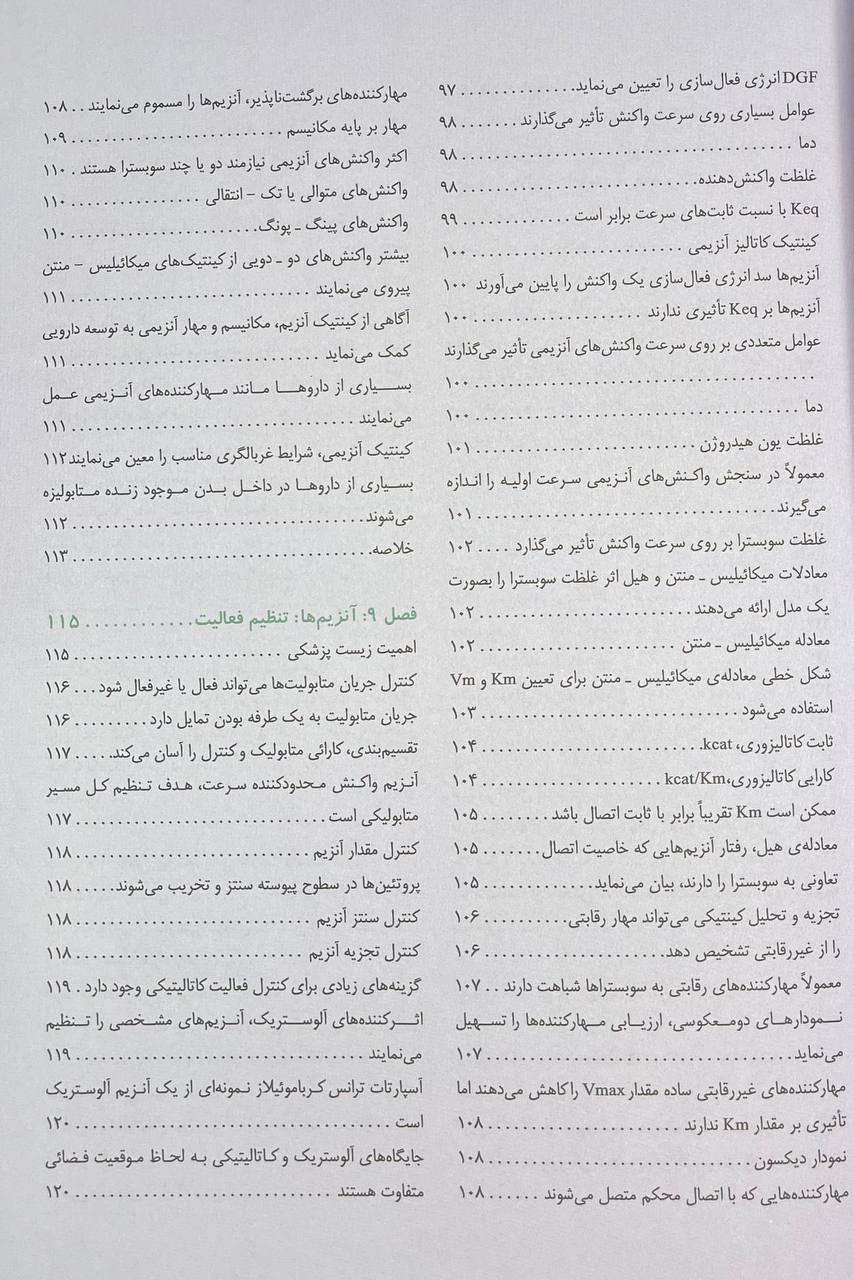 DGF انرژی فعال‌سازی را تعیین می‌نماید. . . . . . . . . . . . . . . ۹۷
عوامل بسیاری روی سرعت واکنش تأثیر می‌گذارند . . . . . . . ۹۸
دما . . . . . . . . . . . . . . . . . . . . . . . . . . . . . . ۹۸
غلظت واکنش‌دهنده. . . . . . . . . . . . . . . . . . . . . . . . ۹۸
Keq با نسبت ثابت‌های سرعت برابر است . . . . . . . . . . . . ۹۹
کینتیک کاتالیز آنزیمی . . . . . . . . . . . . . . . . . . . . . ۱۰۰
آنزیم‌ها سد انرژی فعال‌سازی یک واکنش را پایین می‌آورند ۱۰۰
آنزیم‌ها بر Keq تأثیری ندارند . . . . . . . . . . . . . . . . . ۱۰۰
عوامل متعددی بر روی سرعت واکنش‌های آنزیمی تأثیر می‌گذارند
. . . . . . . . . . . . . . . . . . . . . . . . . . . . . . . . ۱۰۰
دما . . . . . . . . . . . . . . . . . . . . . . . . . . . . . . ۱۰۰
غلظت یون هیدروژن . . . . . . . . . . . . . . . . . . . . . . . ۱۰۱
معمولاً در سنجش واکنش‌های آنزیمی سرعت اولیه را اندازه
می‌گیرند. . . . . . . . . . . . . . . . . . . . . . . . . . . . ۱۰۱
غلظت سوبسترا بر روی سرعت واکنش تأثیر می‌گذارد . . . . ۱۰۲
معادلات میکائیلیس ـ منتن و هیل اثر غلظت سوبسترا را بصورت
یک مدل ارائه می‌دهند . . . . . . . . . . . . . . . . . . . . . ۱۰۲
معادله میکائیلیس ـ منتن . . . . . . . . . . . . . . . . . . . . ۱۰۲
شکل خطی معادله‌ی میکائیلیس ـ منتن برای تعیین Km و Vm
استفاده می‌شود . . . . . . . . . . . . . . . . . . . . . . . . . ۱۰۳
ثابت کاتالیزوری، kcat. . . . . . . . . . . . . . . . . . . . . . ۱۰۴
کارایی کاتالیزوری،kcat/Km . . . . . . . . . . . . . . . . . . . ۱۰۴
ممکن است Km تقریباً برابر با ثابت اتصال باشد . . . . . . . . ۱۰۵
معادله‌ی هیل، رفتار آنزیم‌هایی که خاصیت اتصال. . . . . . . ۱۰۵
تعاونی به سوبسترا را دارند، بیان می‌نماید. . . . . . . . . . . . ۱۰۵
تجزیه و تحلیل کینتیکی می‌تواند مهار رقابتی. . . . . . . . . . ۱۰۶
را از غیررقابتی تشخیص دهد. . . . . . . . . . . . . . . . . . . ۱۰۶
معمولاً مهارکننده‌های رقابتی به سوبستراها شباهت دارند . . ۱۰۷
نمودارهای دومعکوسی، ارزیابی مهارکننده‌ها را تسهیل
می‌نماید. . . . . . . . . . . . . . . . . . . . . . . . . . . . . ۱۰۷
مهارکننده‌های غیررقابتی ساده مقدار Vmax را کاهش می‌دهند اما
تأثیری بر مقدار Km ندارند . . . . . . . . . . . . . . . . . . . ۱۰۸
نمودار دیکسون. . . . . . . . . . . . . . . . . . . . . . . . . . ۱۰۸
مهارکننده‌هایی که با اتصال محکم متصل می‌شوند . . . . . . ۱۰۸
مهارکننده‌های برگشت‌ناپذیر، آنزیم‌ها را مسموم می‌نمایند . . ۱۰۸
مهار بر پایه مکانیسم . . . . . . . . . . . . . . . . . . . . . . . ۱۰۹
اکثر واکنش‌های آنزیمی نیازمند دو یا چند سوبسترا هستند . ۱۱۰
واکنش‌های متوالی یا تک – انتقالی . . . . . . . . . . . . . . . ۱۱۰
واکنش‌های پینگ ـ پونگ. . . . . . . . . . . . . . . . . . . . . ۱۱۰
بیشتر واکنش‌های دو ـ دویی از کینتیک‌های میکائیلیس – منتن
پیروی می‌نمایند . . . . . . . . . . . . . . . . . . . . . . . . . ۱۱۱
آگاهی از کینتیک آنزیم، مکانیسم و مهار آنزیمی به توسعه دارویی
کمک می‌نماید . . . . . . . . . . . . . . . . . . . . . . . . . . ۱۱۱
بسیاری از داروها مانند مهارکننده‌های آنزیمی عمل
می‌نمایند . . . . . . . . . . . . . . . . . . . . . . . . . . . . . ۱۱۱
کینتیک آنزیمی، شرایط غربالگری مناسب را معین می‌نمایند ۱۱۲
بسیاری از داروها در داخل بدن موجود زنده متابولیزه
می‌شوند. . . . . . . . . . . . . . . . . . . . . . . . . . . . . . ۱۱۲
خلاصه. . . . . . . . . . . . . . . . . . . . . . . . . . . . . . . ۱۱۳
فصل ۹: آنزیم‌ها: تنظیم فعالیت. . . . . . . . . . . . ۱۱۵
اهمیت زیست پزشکی . . . . . . . . . . . . . . . . . . . . . . . ۱۱۵
کنترل جریان متابولیت‌ها می‌تواند فعال یا غیرفعال شود . . . ۱۱۶
جریان متابولیت به یک طرفه بودن تمایل دارد. . . . . . . . . ۱۱۶
تقسیم‌بندی، کارائی متابولیک و کنترل را آسان می‌کند. . . . . ۱۱۷
آنزیم واکنش محدودکننده سرعت، هدف تنظیم کل مسیر
متابولیکی است . . . . . . . . . . . . . . . . . . . . . . . . . . ۱۱۷
کنترل مقدار آنزیم . . . . . . . . . . . . . . . . . . . . . . . . ۱۱۸
پروتئین‌ها در سطوح پیوسته سنتز و تخریب می‌شوند. . . . . ۱۱۸
کنترل سنتز آنزیم . . . . . . . . . . . . . . . . . . . . . . . . . ۱۱۸
کنترل تجزیه آنزیم . . . . . . . . . . . . . . . . . . . . . . . . ۱۱۸
گزینه‌های زیادی برای کنترل فعالیت کاتالیتیکی وجود دارد . ۱۱۹
اثرکننده‌های آلوستریک، آنزیم‌های مشخصی را تنظیم
می‌نمایند . . . . . . . . . . . . . . . . . . . . . . . . . . . . . ۱۱۹
آسپارتات ترانس کرباموئیلاز نمونه‌ای از یک آنزیم آلوستریک
است . . . . . . . . . . . . . . . . . . . . . . . . . . . . . . . . ۱۲۰
جایگاه‌های آلوستریک و کاتالیتیکی به لحاظ موقعیت فضائی
متفاوت هستند . . . . . . . . . . . . . . . . . . . . . . . . . . ۱۲۰